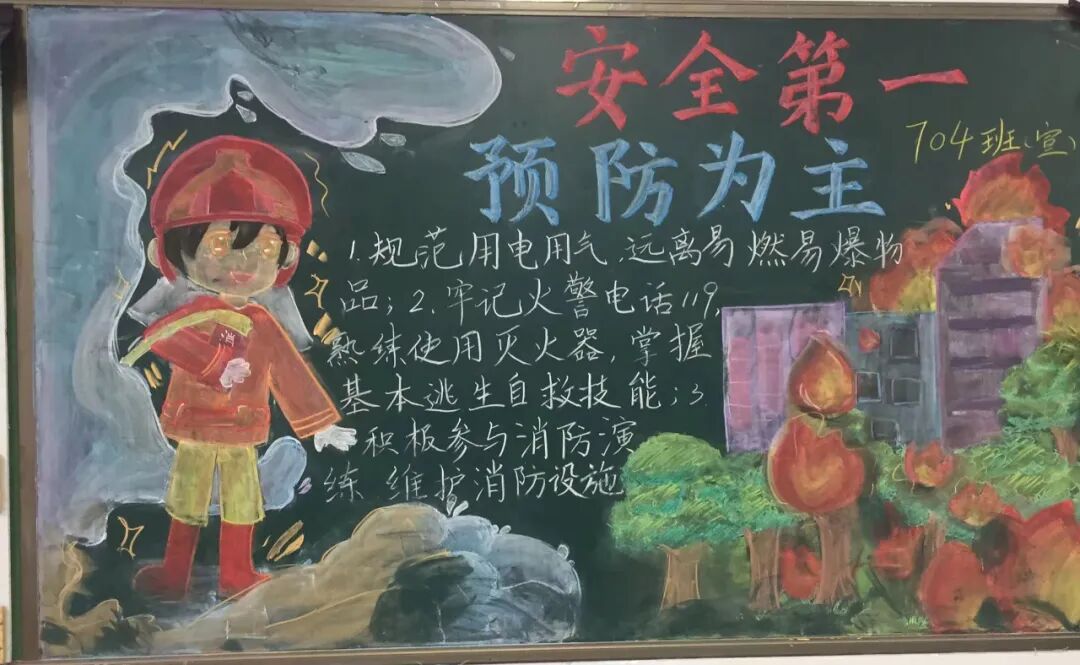 安全第一
预防为主
704班(宣)
1.规范用电用气、远离易燃易爆物
品;2.牢记火警电话119,
熟练使用灭火器,掌握
基本逃生自救技能;3
积极参与消防演
练 维护消防设施
消